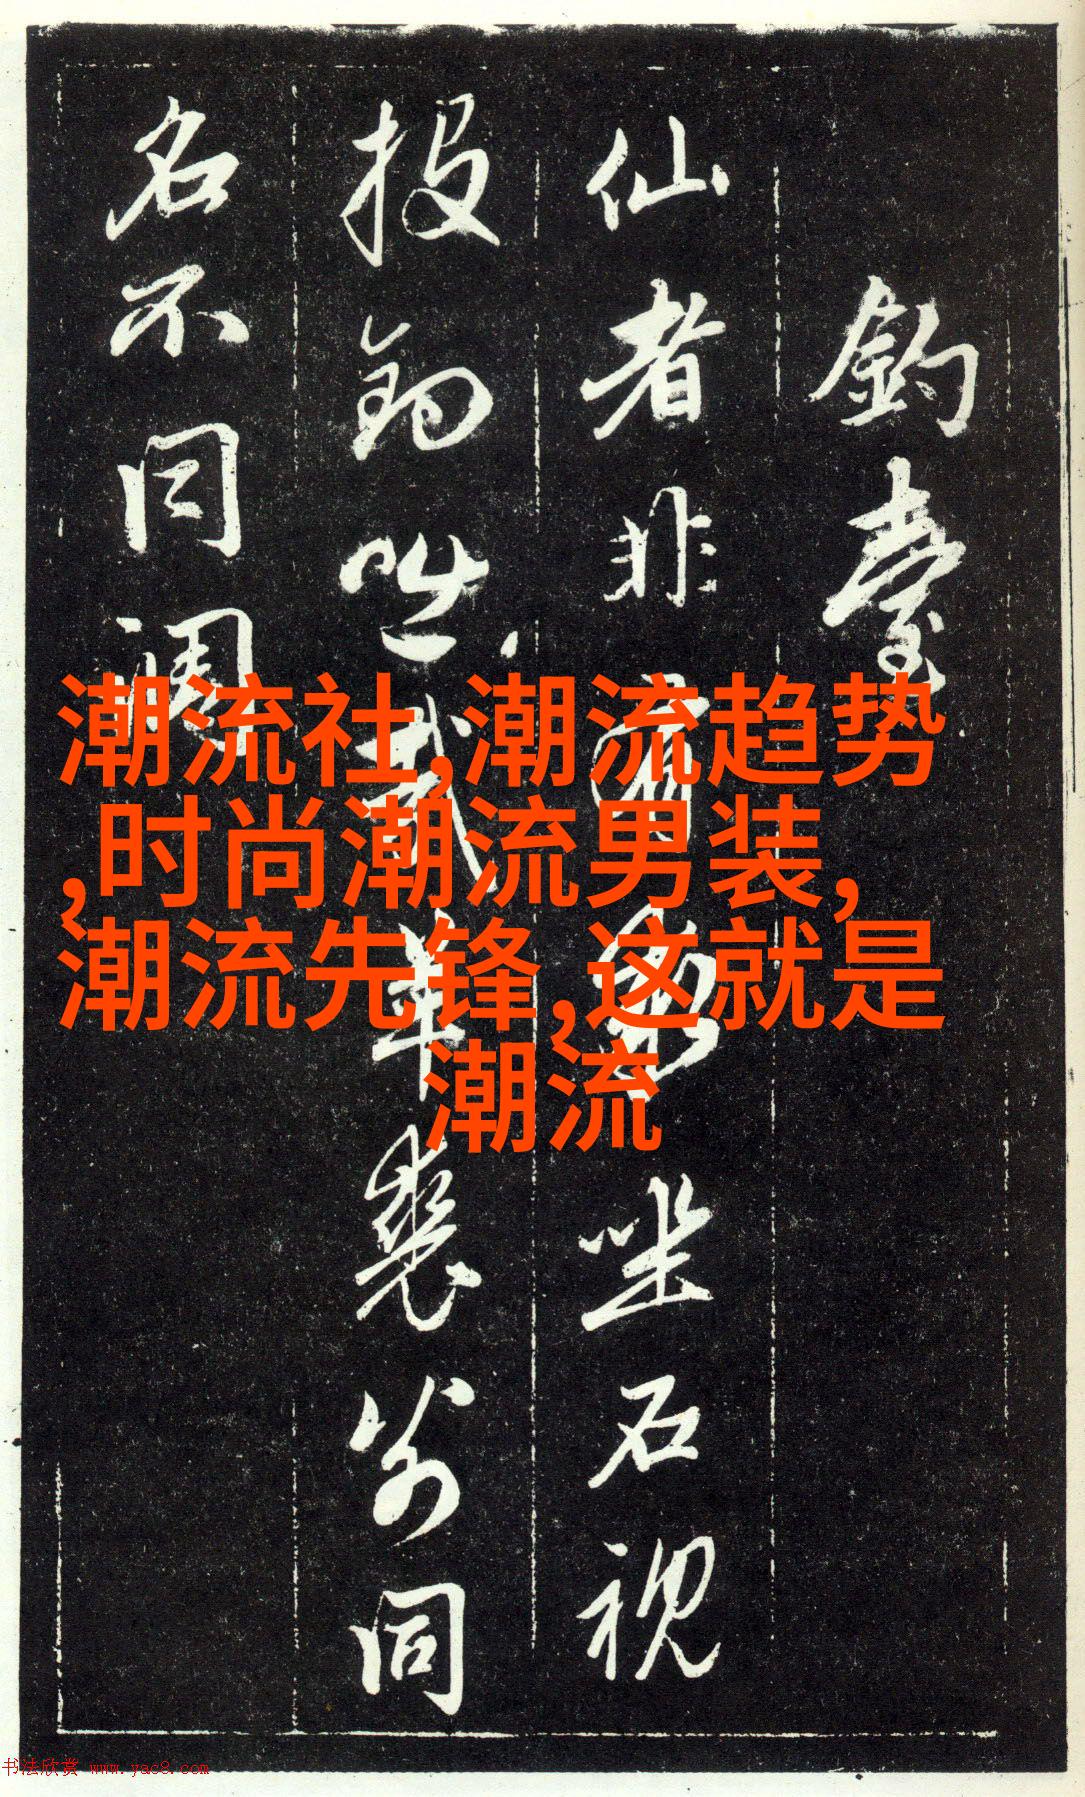 釣臺
仙者非有求坐石視
投釣咄哉羊裘別同
名不同調
潮流社,潮流趋势
,时尚潮流男装,
潮流先锋,这就是
潮流
书法欣赏 www.yac8.com